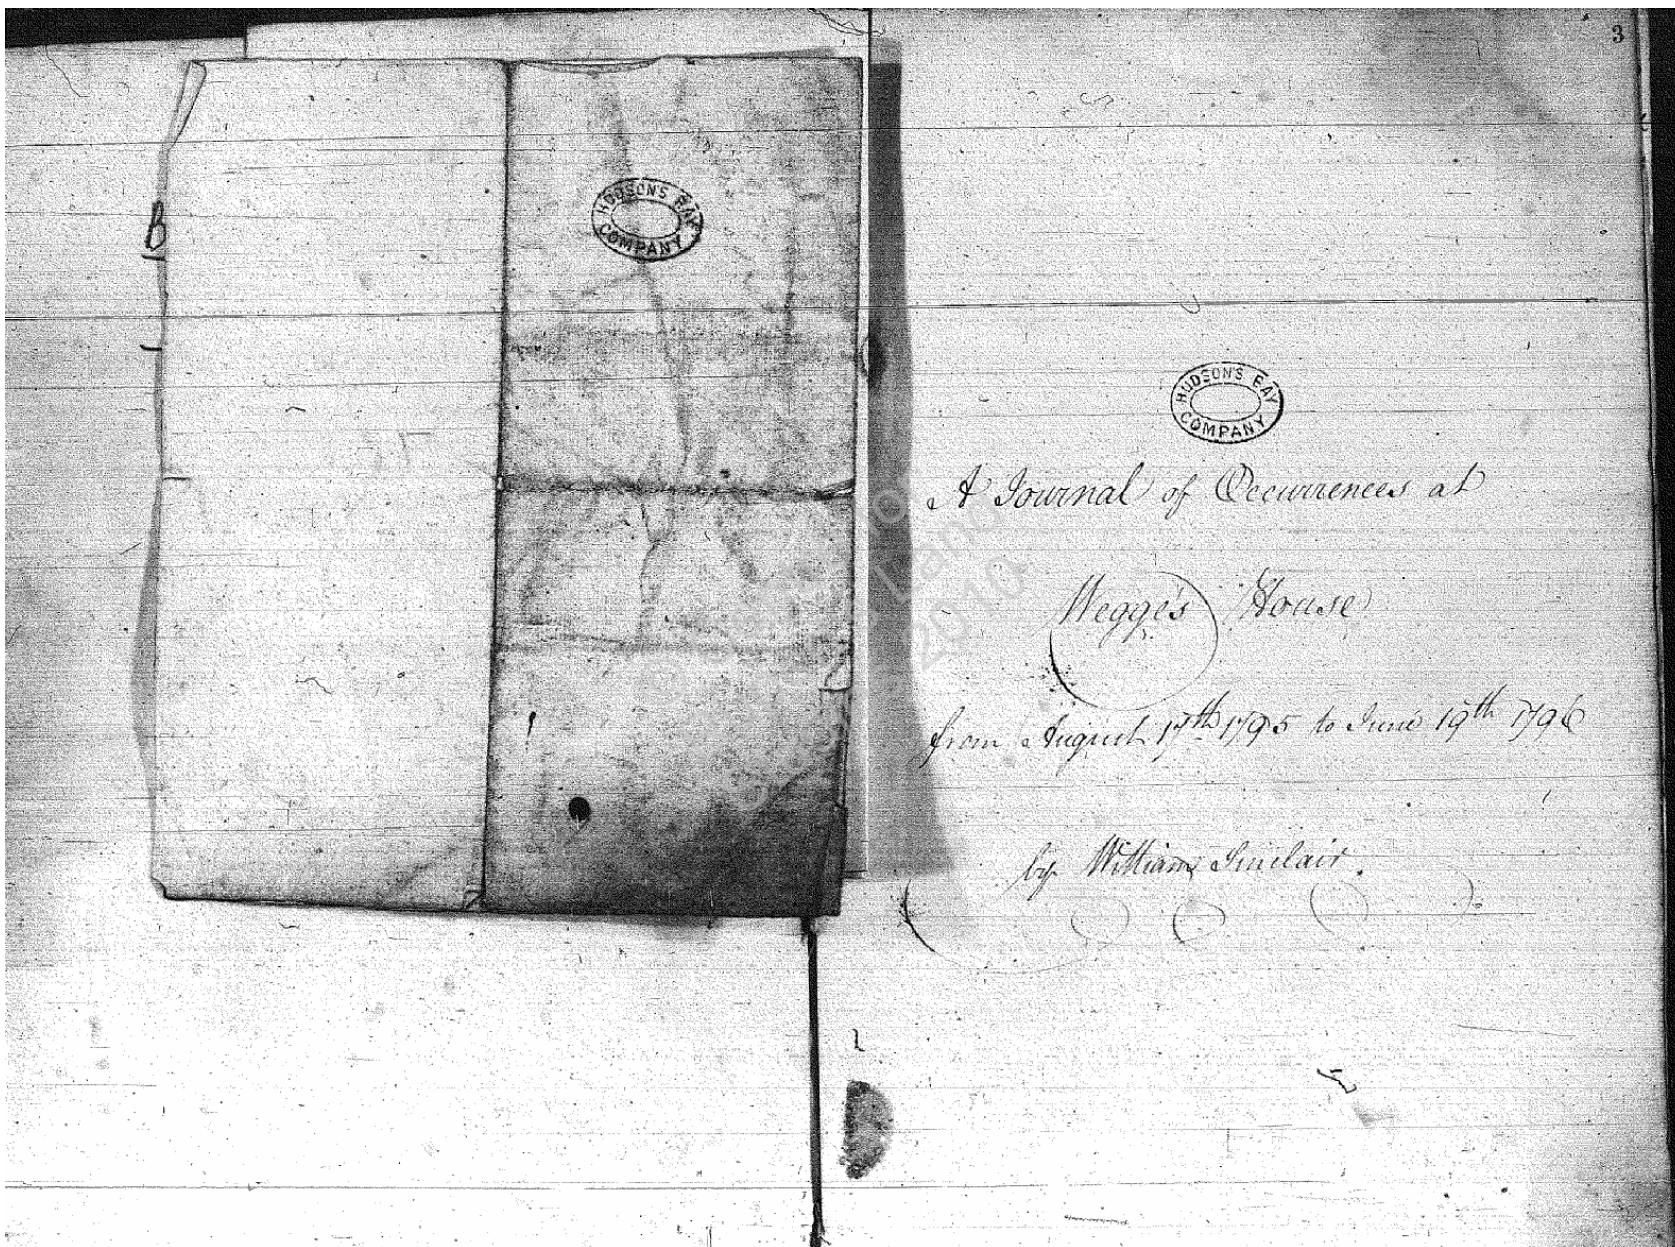 3
B
HUDSON'S BAY
COMPANY
HUDSON'S BAY
COMPANY
A Journal of Occurrences at
Wegg's House
from August 17th 1795 to June 19th 1796
by William Sinclair.
2010